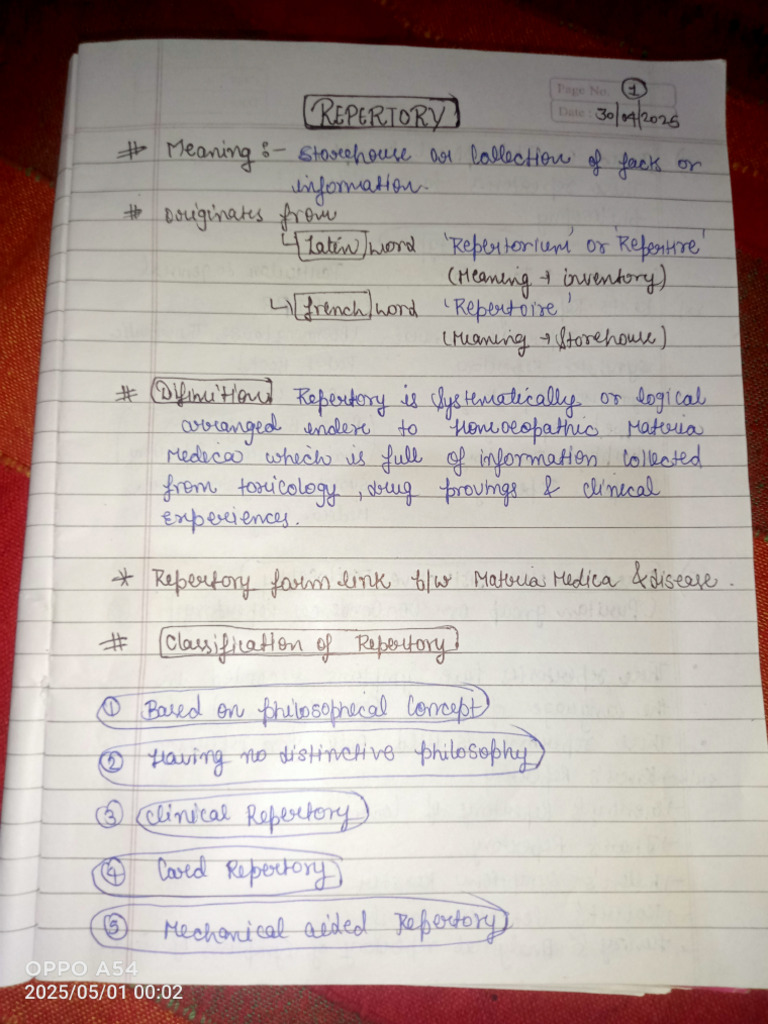 Page No. 1
Date: 30/04/2025
REPERTORY
# Meaning :- Storehouse or Collection of facts or
information.
# Originates from
↳ Latin word 'Repertorium' or 'Repertire'
(Meaning → inventory)
↳ french word 'Repertoire'
(Meaning → Storehouse)
# Difinition Repertory is Systematically or logical
arranged index to Homoeopathic Materia
Medica which is full of information collected
from toxicology, drug provings & clinical
experiences.
* Repertory form link b/w Materia Medica & disease.
# Classification of Repertory
① Based on philosophical Concept
② Having no distinctive philosophy
③ Clinical Repertory
④ Card Repertory
⑤ Mechanical aided Repertory
OPPO A54
2025/05/01 00:02